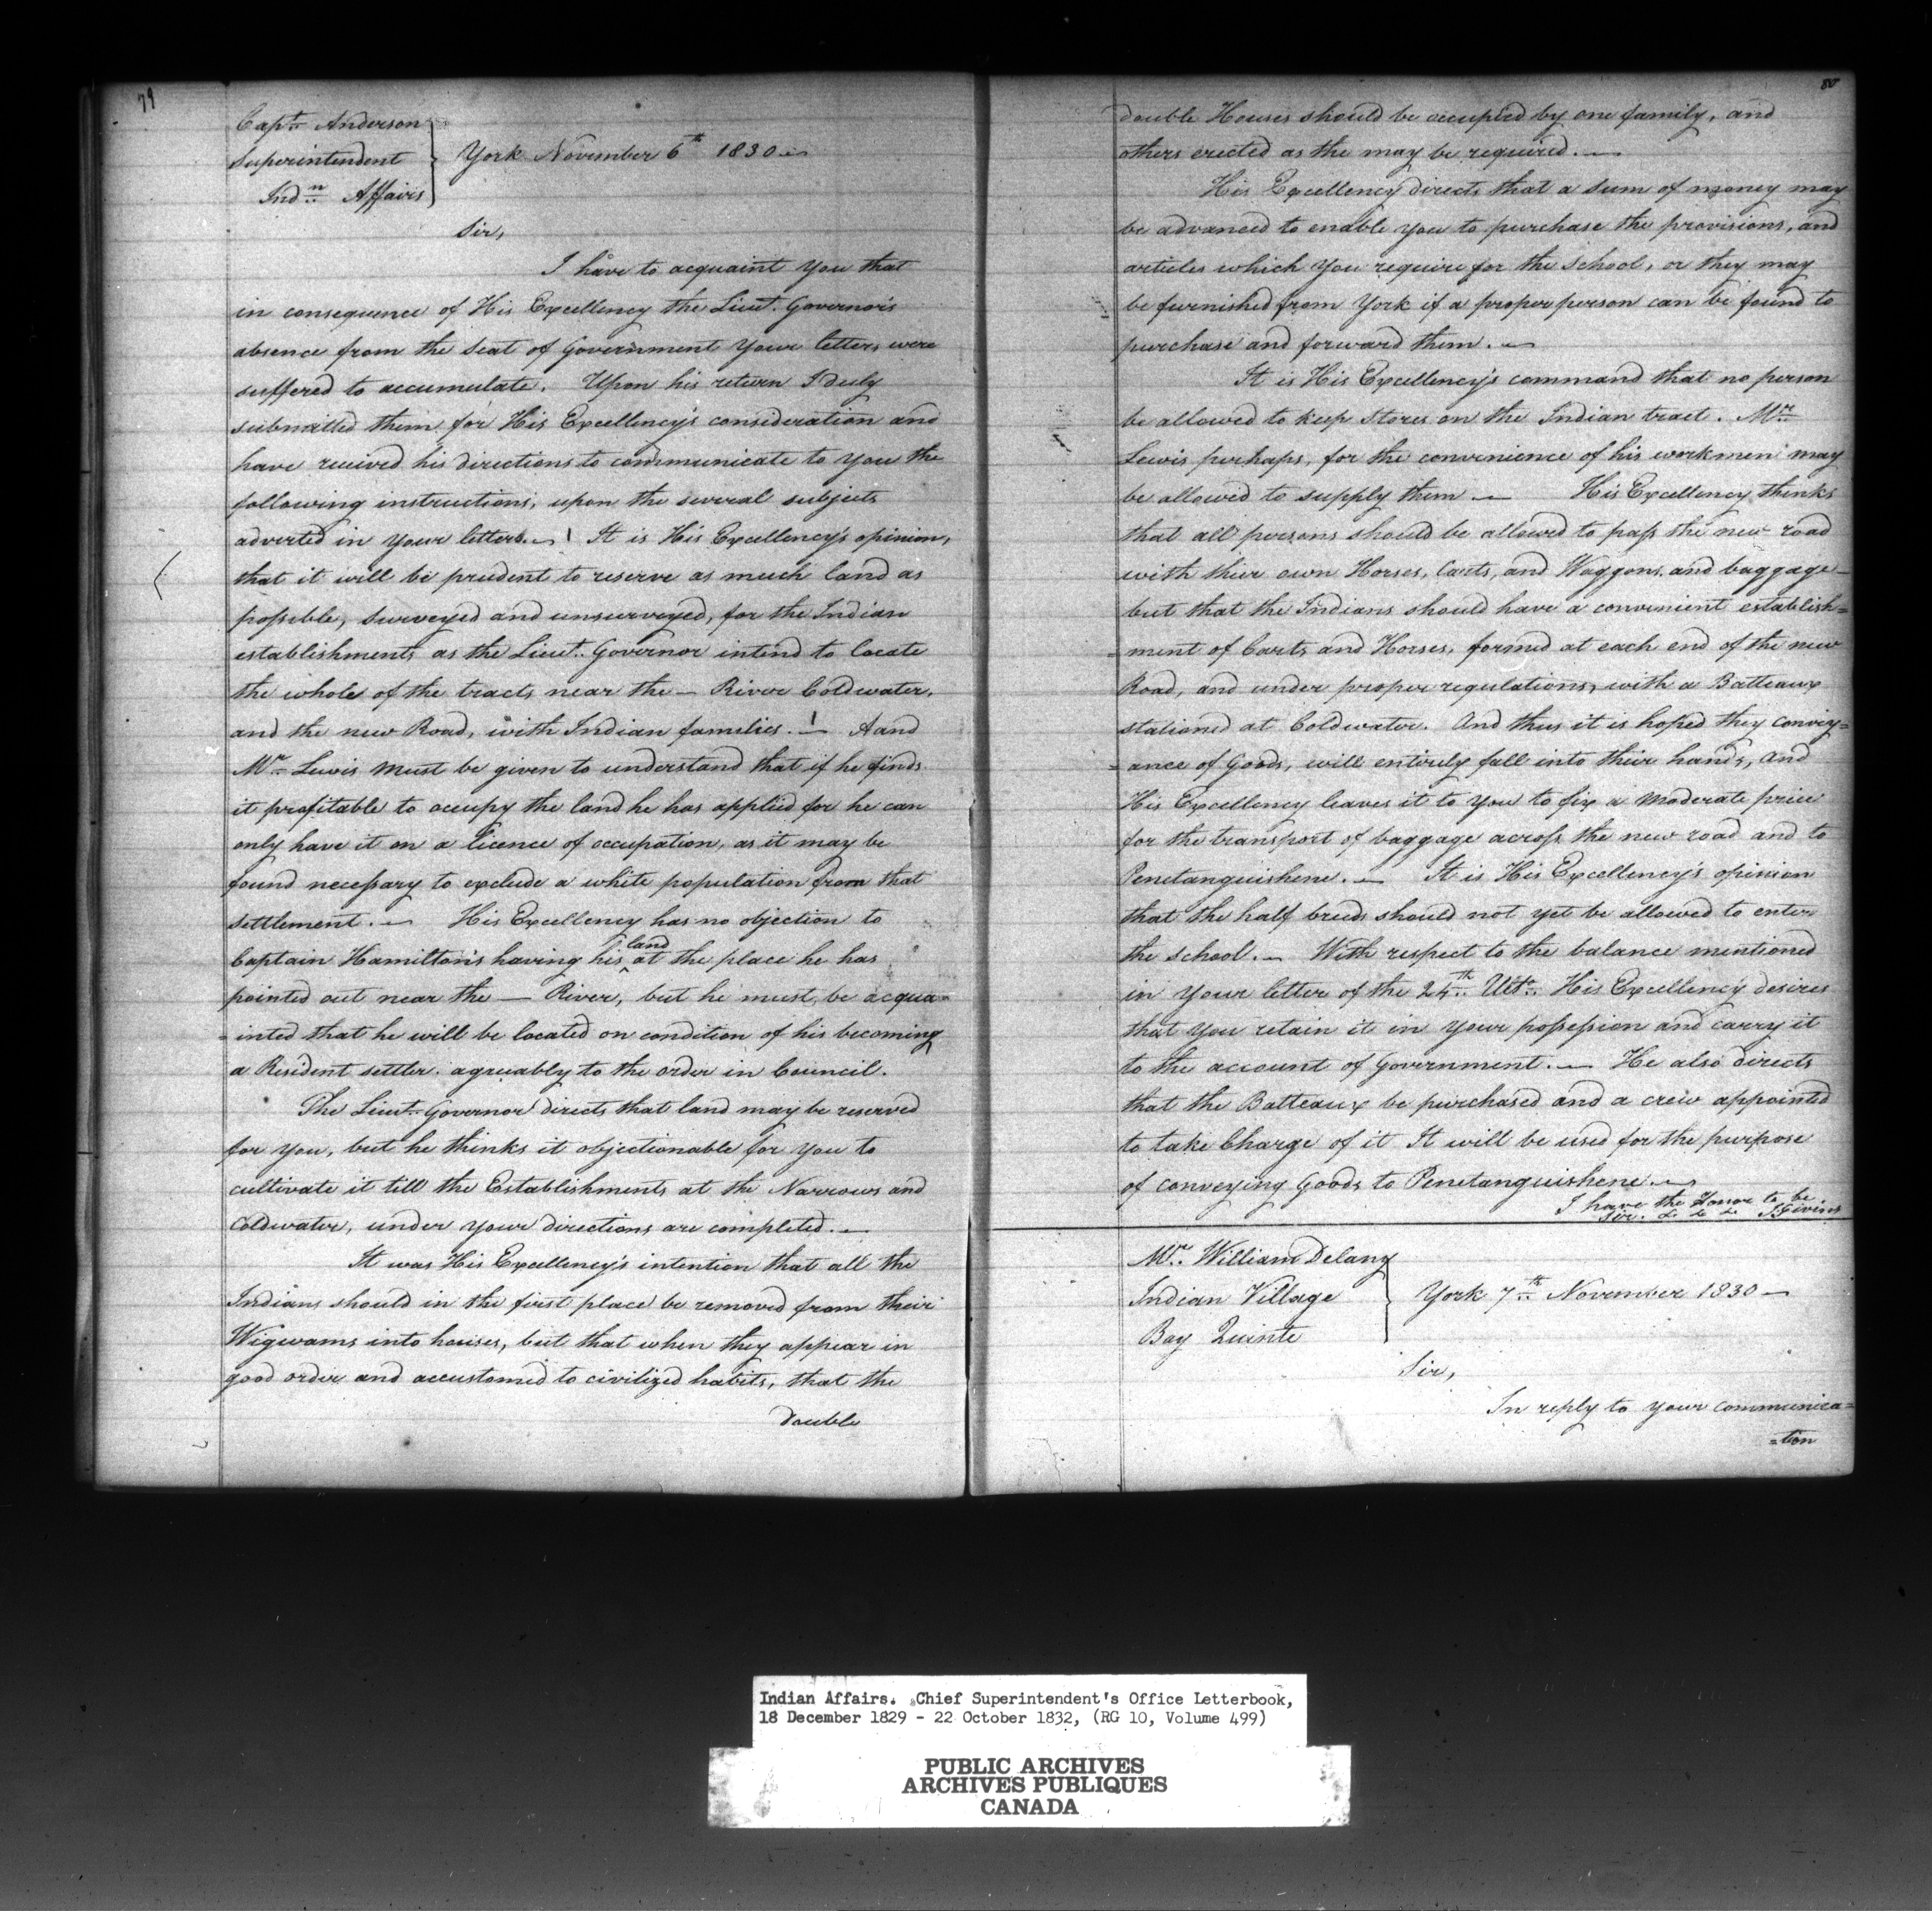 79
Capt. Anderson
Superintendent
Indn Affairs
York November 6th 1830
Sir,
I have to acquaint you that
in consequence of His Excellency the Lieut. Governor's
absence from the Seat of Government your letters were
suffered to accumulate. Upon his return I duly
submitted them for His Excellency's consideration and
have received his directions to communicate to you the
following instructions, upon the several subjects
adverted in your letters. — It is His Excellency's opinion,
that it will be prudent to reserve as much land as
possible, surveyed and unsurveyed, for the Indian
establishments as the Lieut. Governor intend to locate
the whole of the tracts near the — River Coldwater,
and the new Road, with Indian families. — Aand
Mr. Lewis must be given to understand that if he finds
it profitable to occupy the land he has applied for he can
only have it on a licence of occupation, as it may be
found necessary to exclude a white population from that
settlement. — His Excellency has no objection to
Captain Hamilton's having his land at the place he has
pointed out near the — River, but he must be acqua=
=inted that he will be located on condition of his becoming
a Resident settler. agreuably to the order in Council.
The Lieut. Governor directs that land may be reserved
for you, but he thinks it objectionable for you to
cultivate it till the Establishments at the Narrows and
Coldwater, under your directions are completed. —
It was His Excellency's intention that all the
Indians should in the first place be removed from their
Wigwams into houses, but that when they appear in
good order and accustomed to civilized habits, that the
double
80
double Houses should be occupied by one family, and
others erected as the may be required. —
His Excellency directs that a sum of money may
be advanced to enable you to purchase the provisions, and
articles which you require for the School, or they may
be furnished from York if a proper person can be found to
purchase and forward them. —
It is His Excellency's command that no person
be allowed to keep Stores on the Indian tract. Mr.
Lewis perhaps, for the convenience of his workmen may
be allowed to supply them — His Excellency thinks
that all persons should be allowed to pass the new road
with their own Horses, Carts, and Waggons, and baggage
but that the Indians should have a convenient establish=
=ment of Carts and Horses, formed at each end of the new
Road, and under proper regulations, with a Batteaux
stationed at Coldwater. And thus it is hoped they convey=
=ance of Goods, will entirely fall into their hands, and
His Excellency leaves it to you to fix a moderate price
for the transport of baggage across the new road and to
Penetanguishene. — It is His Excellency's opinion
that the half breeds should not yet be allowed to enter
the school. — With respect to the balance mentioned
in your letter of the 24th Ulto. His Excellency desires
that you retain it in your possession and carry it
to the account of Government. — He also directs
that the Batteaux be purchased and a crew appointed
to take Charge of it It will be used for the purpose
of conveying Goods to Penetanguishene —
I have the Honor to be
Sir. &c &c &c J Givins
Mr. William Delany
Indian Village
Bay Quinte
York 7th November 1830 —
Sir,
In reply to your communica=
=tion
Indian Affairs. Chief Superintendent's Office Letterbook,
18 December 1829 - 22 October 1832, (RG 10, Volume 499)
PUBLIC ARCHIVES
ARCHIVES PUBLIQUES
CANADA